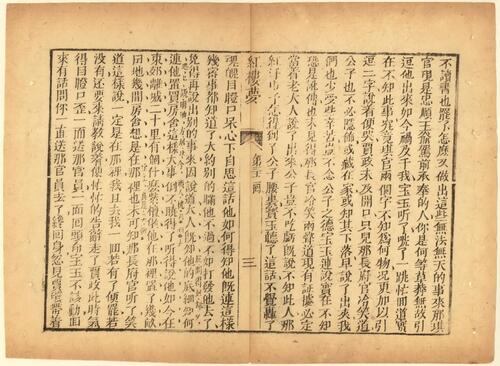 不讀書也罷了怎麽又做出這些無法無天的事來那琪
官現是忠順王爺駕前承奉的人你是何等草莽無故引
逗他出來如今禍及于我寶玉聽了唬了一跳忙回道實
在不知此事究竟琪官兩個字不知爲何物況更加以引
逗二字說着便哭賈政未及開口只見那長府官冷笑道
公子也不必隱飾或藏在家或知其下落早說了出來我
們也少受些辛苦豈不念公子之德寶玉連說實在不知
恐是訛傳也未見得那長府官冷笑兩聲道現有証據必定
當着老大人說了出來公子豈不吃虧既說不知此人那
紅汗巾子怎得到了公子腰裏寶玉聽了這話不覺轟了
紅樓夢
第三三回
三
魂魄目瞪口呆心下自思這話他如何得知他既連這樣
機密事都知道了大約別的瞞他不過不如打發他去了
免得再說出別的事來因說道大人既知他的底細如何
連他置買房舍這樣大事倒不曉得了聽得說他如今在
東郊離城二十里有個什麽紫檀堡他在那裡置了幾畝
田地幾間房舍想是在那裡也未可知那長府官聽了笑
道這樣說一定是在那裡我且去找一回若有了便罷若
沒有還要來請教說着便忙忙的告辭走了賈政此時氣
得目瞪口歪一面送那官員一面回頭命寶玉不許動回
來有話問你一直送那官員去了纔回身忽見賈環帶着